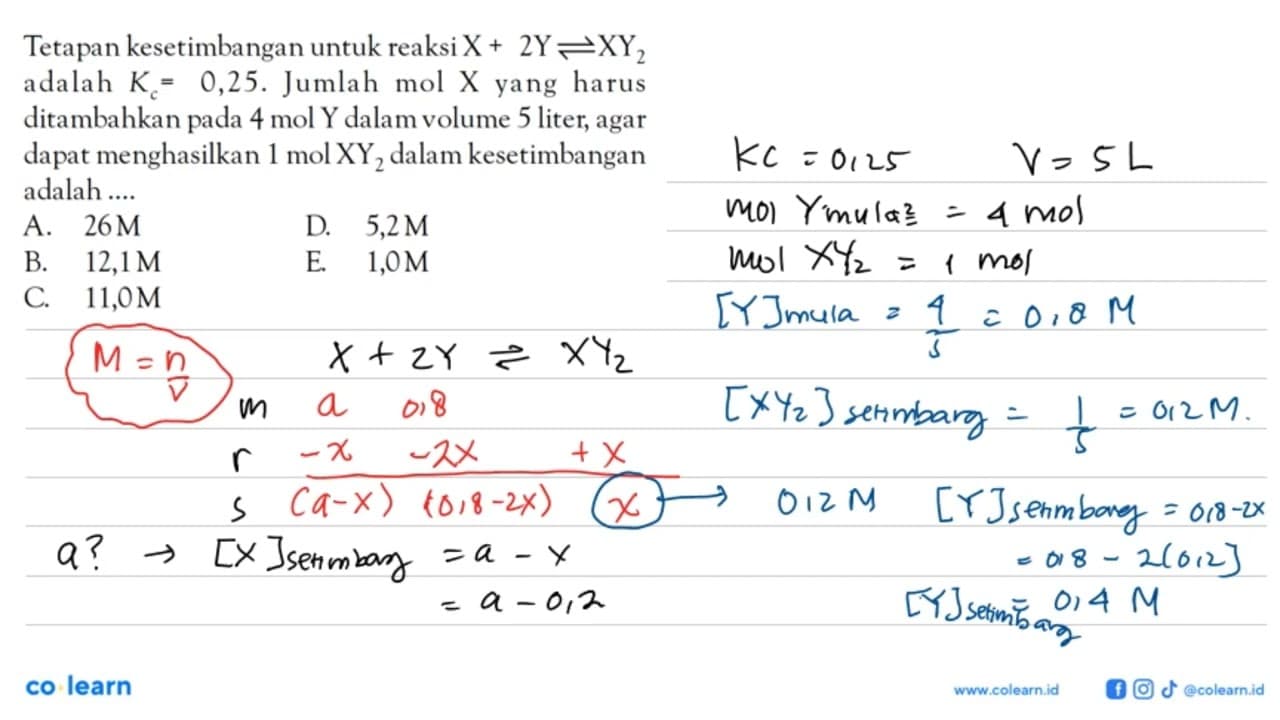 Tetapan kesetimbangan untuk reaksi X + 2Y⇌XY₂
adalah K_c= 0,25. Jumlah mol X yang harus
ditambahkan pada 4 mol Y dalam volume 5 liter, agar
dapat menghasilkan 1 mol XY₂ dalam kesetimbangan
adalah ....
A. 26 M D. 5,2 M
B. 12,1 M E. 1,0 M
C. 11,0 M
KC = 0,25 V = 5 L
mol Y mula² = 4 mol
mol XY₂ = 1 mol
[Y]mula = 4/5 = 0,8 M
[XY₂] setimbang = 1/5 = 0,2 M.
M = n/V
X + 2Y ⇌ XY₂
m a 0,8
r -x -2x + x
s (a-x) (0,8-2x) x → 0,2 M
[Y]setimbang = 0,8-2x
= 0,8 - 2(0,2)
[Y]setimbang = 0,4 M
a? → [X]setimbang = a - x
= a - 0,2
co learn
www.colearn.id @colearn.id